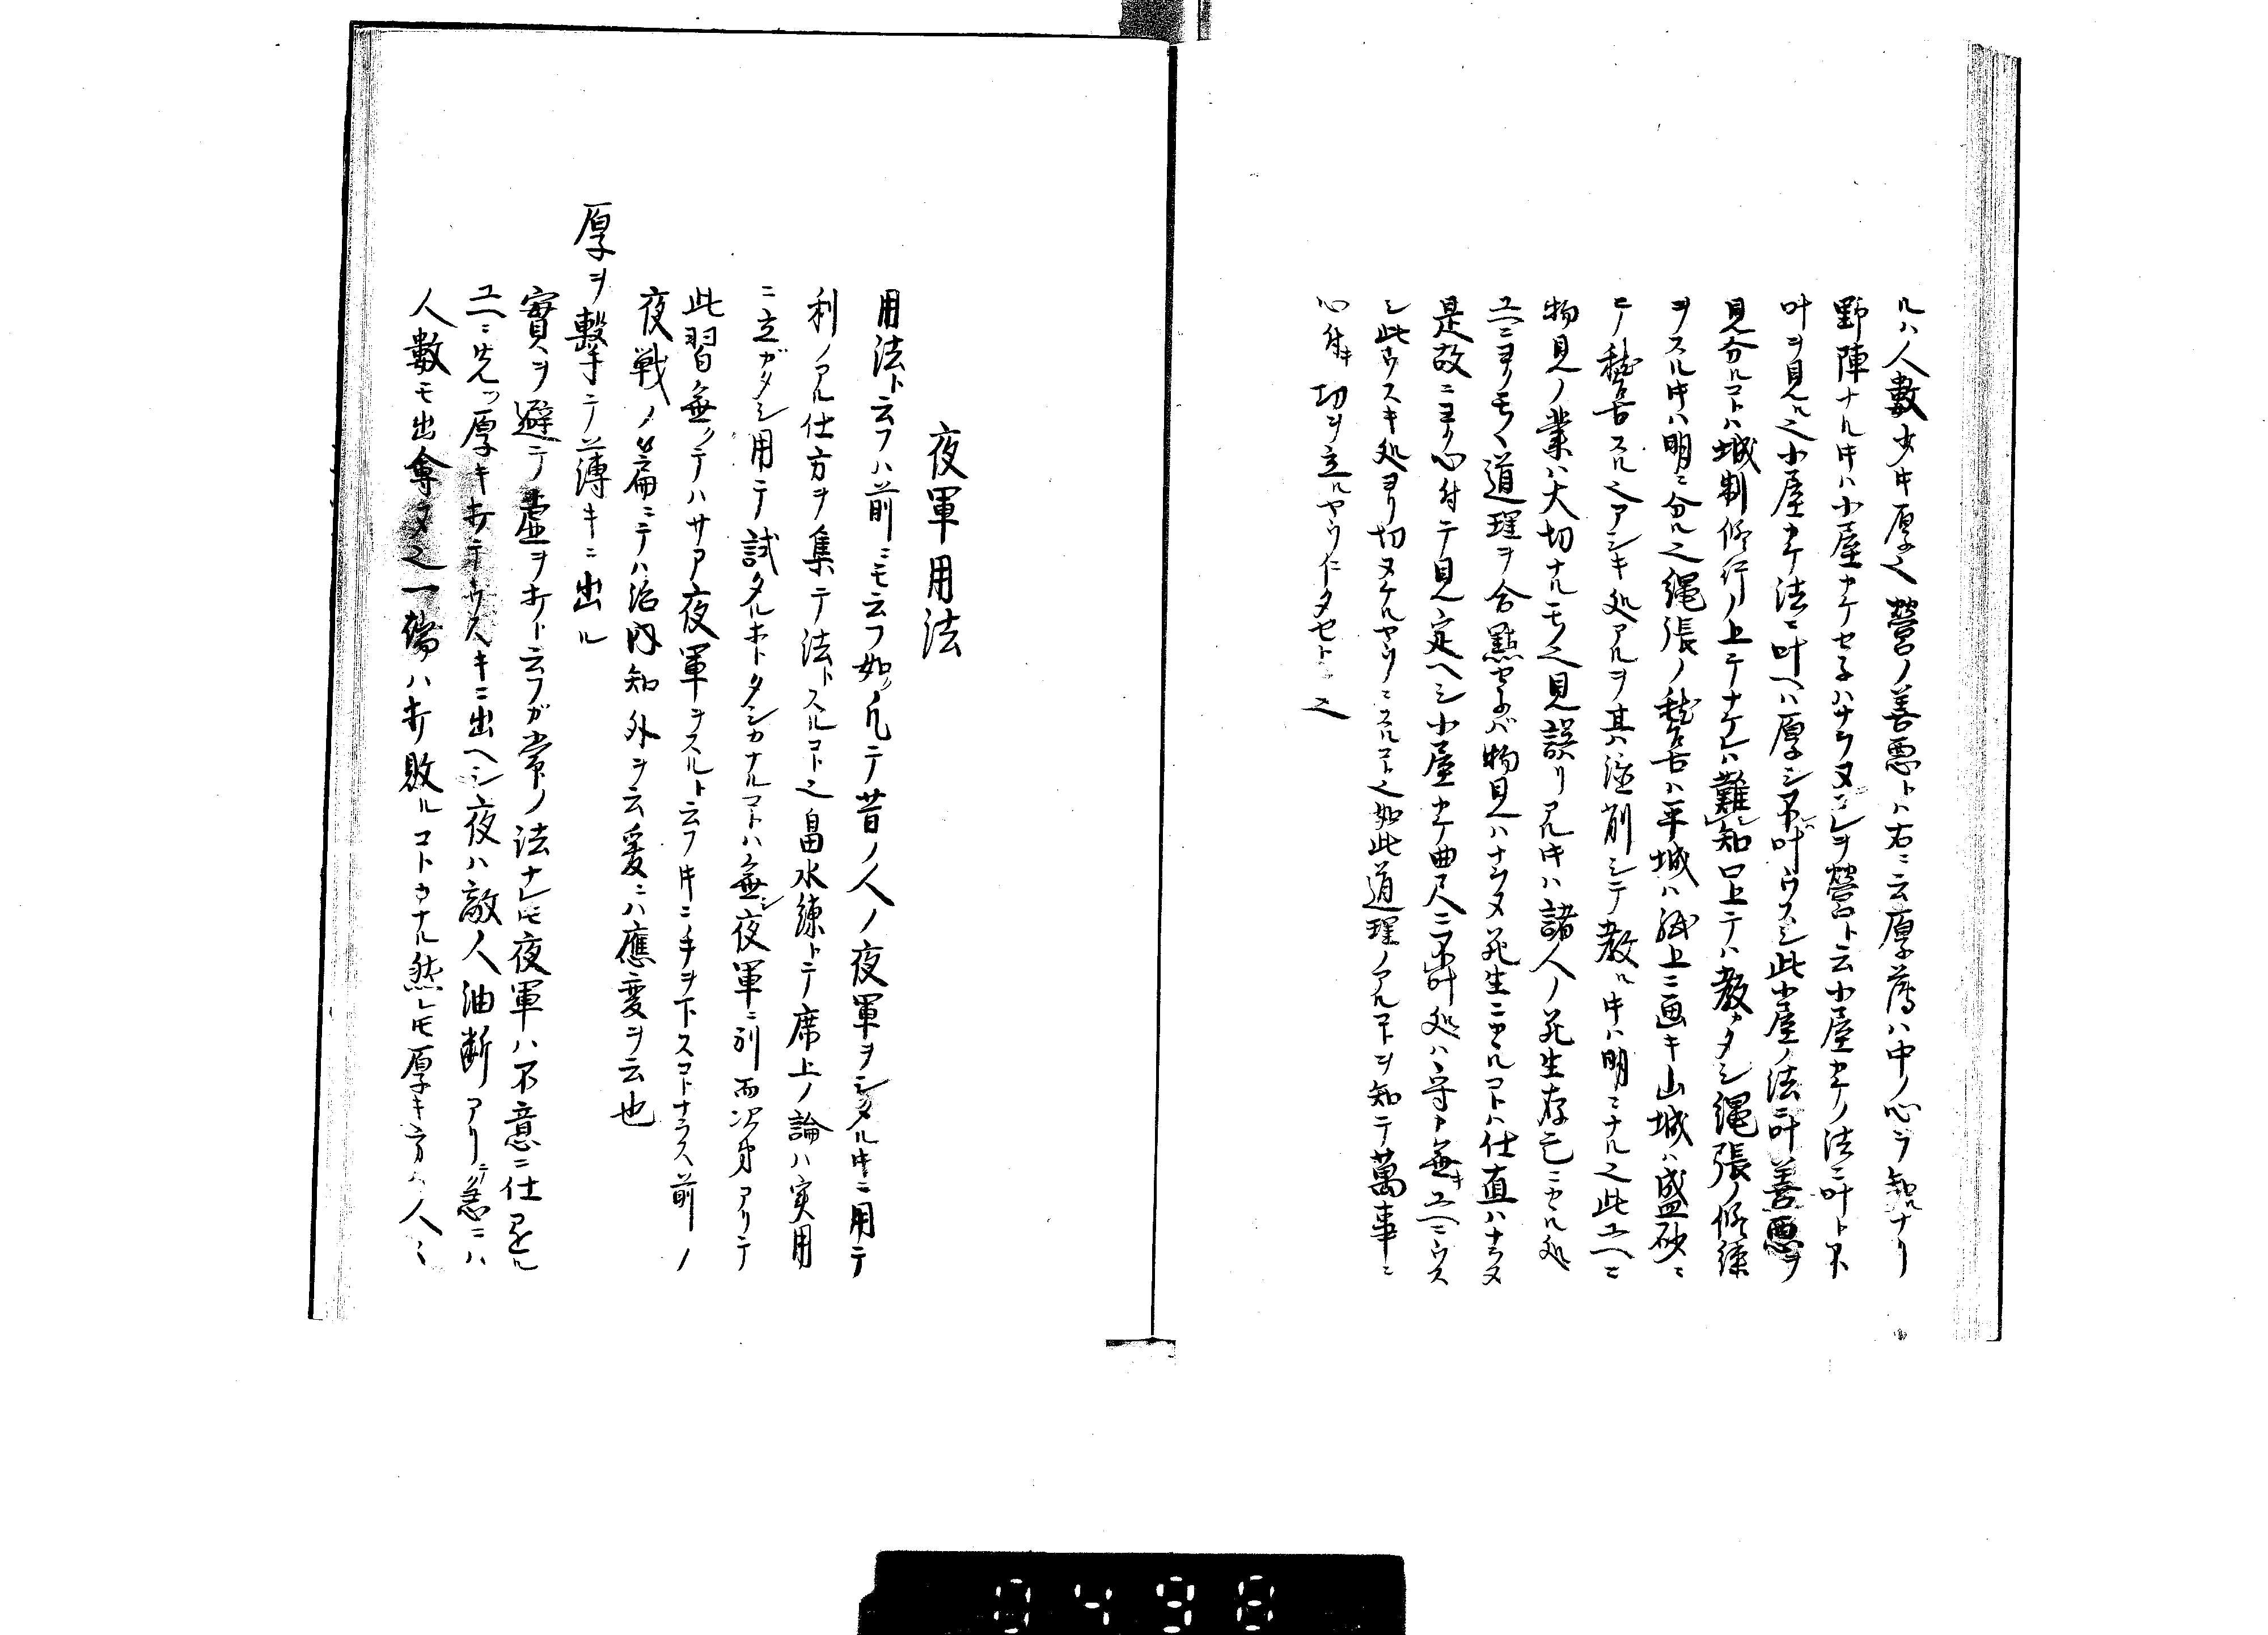 ルハ人數少キ厚之営ノ善悪トハ右ニ云厚薄ハ中ノ心ヲ知ルナリ
野陣ナルキハ小屋カケセネハナラヌコレヲ營ト云小屋カケノ法ニ叶ト不
叶ヲ見ル之小屋カケ法ニ叶ヘハ厚シ不叶ウスシ此小屋ノ法ニ叶善悪ヲ
見分ルコトハ城制修行ノ上テナケレハ難知口上テハ教カタシ繩張ノ修練
ヲスルキハ明ニ分ル之繩張ノ稽古ハ平城ハ紙上ニ画キ山城ハ盛砂ニ
テ稽古スル之アシキ処アルヲ其ハ添削シテ教ルキハ明ニナル之此ユヘニ
物見ノ業ハ大切ナルモノ之見誤リアルキハ諸人ノ死生存亡ニカヽル処
ユヘニヨク〳〵道理ヲ合點セネバ物見ハナラヌ死生ニカヽルコトハ仕直ハナラヌ
是故ニヨク心付テ見定ヘシ小屋カケ曲尺ニ不叶処ハ守ナ無キユヘニウス
シ此ウスキ処ヨリ切ヌケルヤウニスルコト之如此道理ノアルコトヲ知テ萬事ニ
心付キ切ヲ立ルヤウにタセト之
夜軍用法
用法ト云フハ前ニモ云フ如ク凡テ昔ノ人ノ夜軍ヲシタルキニ用テ
利ノアル仕方ヲ集テ法トスルコト之畠水練トテ席上ノ論ハ実用
ニ立ガタシ用テ試タルホトタシカナルコトハ無シ夜軍ニ別而次第アリテ
此習無クテハサア夜軍ヲスルト云フキニ手ヲ下スコトナラス前ノ
夜戦ノ篇ニテハ治内知外ヲ云爰ニハ應変ヲ云也
厚ヲ擊テ薄キニ出ル
實ヲ避テ虚ヲ打ト云フガ常ノ法ナレ圧夜軍ハ不意ニ仕
ユヘニ先ツ厚キ打テウスキニ出ヘシ夜ハ敵人油断アリテ急ニハ
人數モ出會ヌ之一備ハ打敗ルコトカナル然レ圧厚キ方ハ人ミ
0498